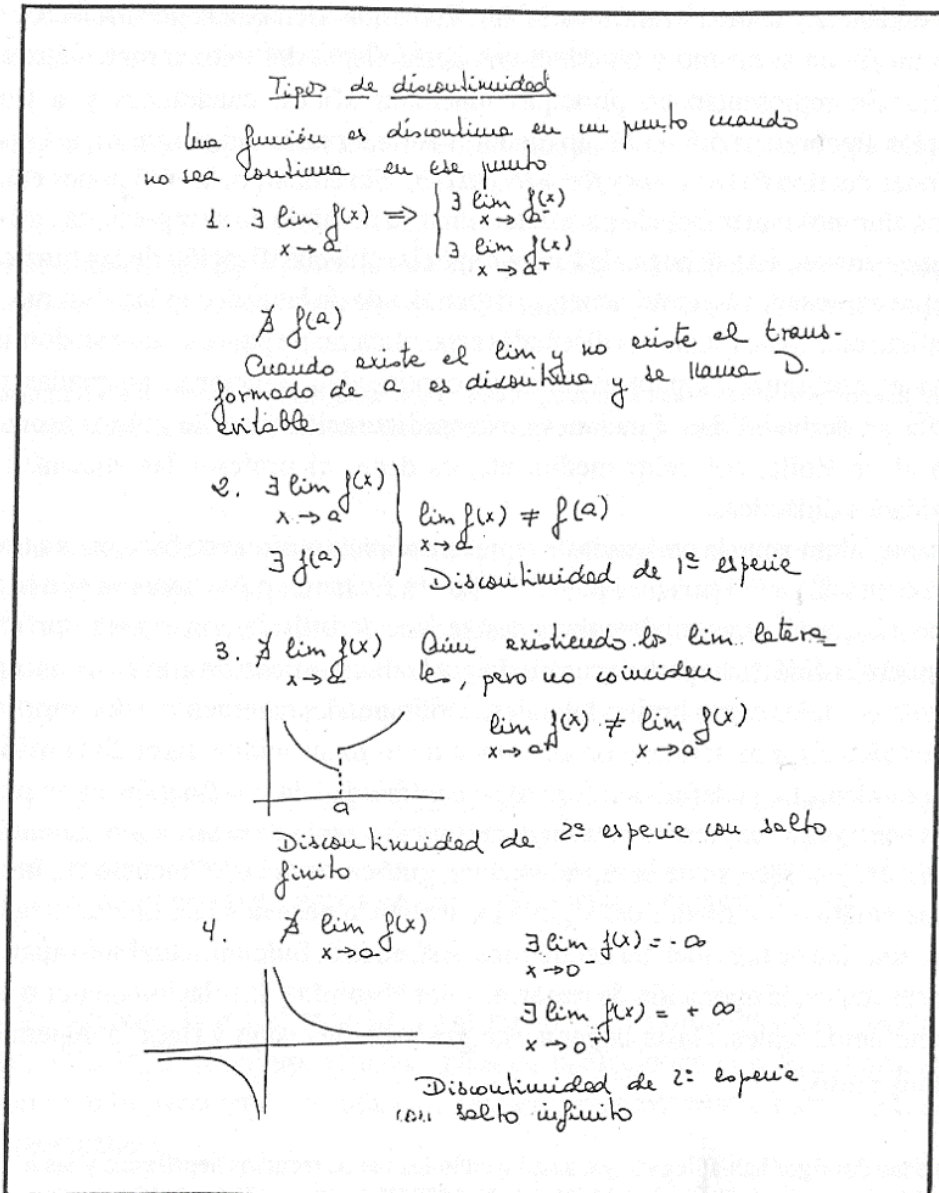 Tipos de discontinuidad
Una función es discontinua en un punto cuando
no sea continua en ese punto
1. ∃ lim f(x) ⇒ { ∃ lim f(x)
x→a x→a⁻
∃ lim f(x)
x→a⁺
∄ f(a)
Cuando existe el lim y no existe el trans-
formado de a es discontinua y se llama D.
evitable.
2. ∃ lim f(x) } lim f(x) ≠ f(a)
x→a x→a
∃ f(a) Discontinuidad de 1ª especie
3. ∄ lim f(x) Aún existiendo los lim. latera
x→a les, pero no coinciden
lim f(x) ≠ lim f(x)
x→a⁺ x→a⁻
a
Discontinuidad de 2ª especie con salto
finito
4. ∄ lim f(x) ∃ lim f(x) = -∞
x→a x→0⁻
∃ lim f(x) = +∞
x→0⁺
Discontinuidad de 2ª especie
con salto infinito